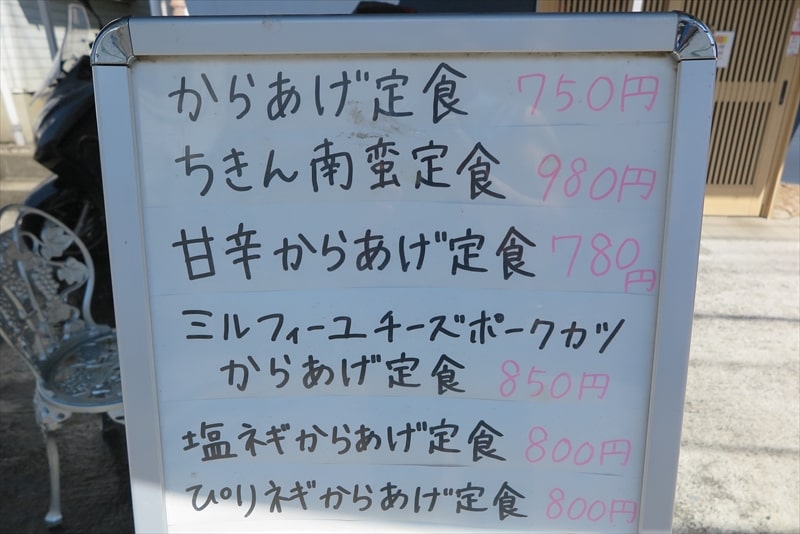 からあげ定食 750円
ちきん南蛮定食 980円
甘辛からあげ定食 780円
ミルフィーユチーズポークカツ
からあげ定食 850円
塩ネギからあげ定食 800円
ぴりネギからあげ定食 800円